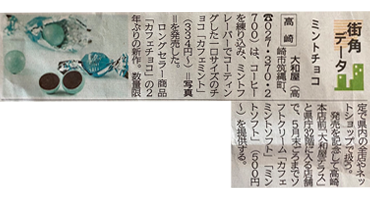 街角
データ
ミントチョコ
高崎
大和屋(高
崎市筑縄町、
☎027・370・2
700)は、コーヒー
を練り込み、ミントフ
レーバーでコーティン
グした一口サイズのチ
ョコ「カフェミント」
(334円~)=写真
=を発売した。
ロングセラー商品
「カフェチョコ」の2
年ぶりの新作。数量限
定で県内の全店やネッ
トショップで扱う。
発売を記念して高崎
本店前「大和屋テラス」
と県庁32階に入る店舗
で、5月末ごろまでソ
フトクリーム「カフェ
ミントソフト」「ミン
トソフト」(500円
~)を提供する。